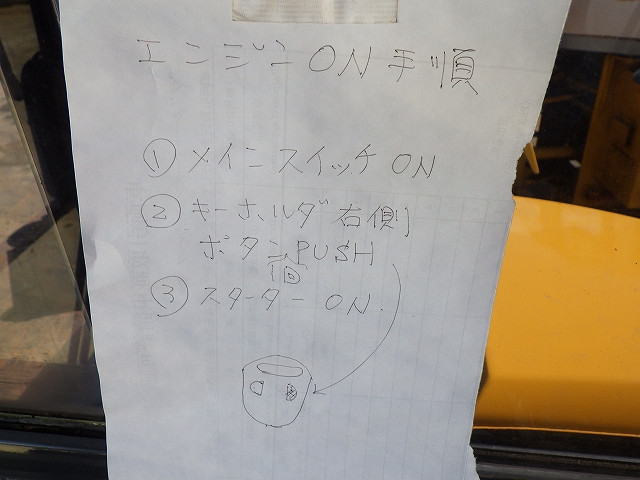 エンジンON手順
① メインスイッチON
② キーホルダ右側
ボタンPUSH
1回
③ スターターON.